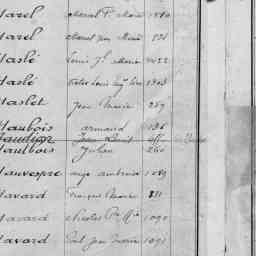 Harel Marcel Pre Marie 1840
Harel Marcel Jean Marie 831
Haslé Louis Jh Marie 1622
Haslé Victor Louis
Haslet Jean Marie 259
Haubois armand 136
Jean Louis
Haulbois Julien 260
Hauvespre ange ambroise 1089
Havard François Marie 831
Havard Charles Pre Mie 1090
Havard Paul Jean Marie 1091